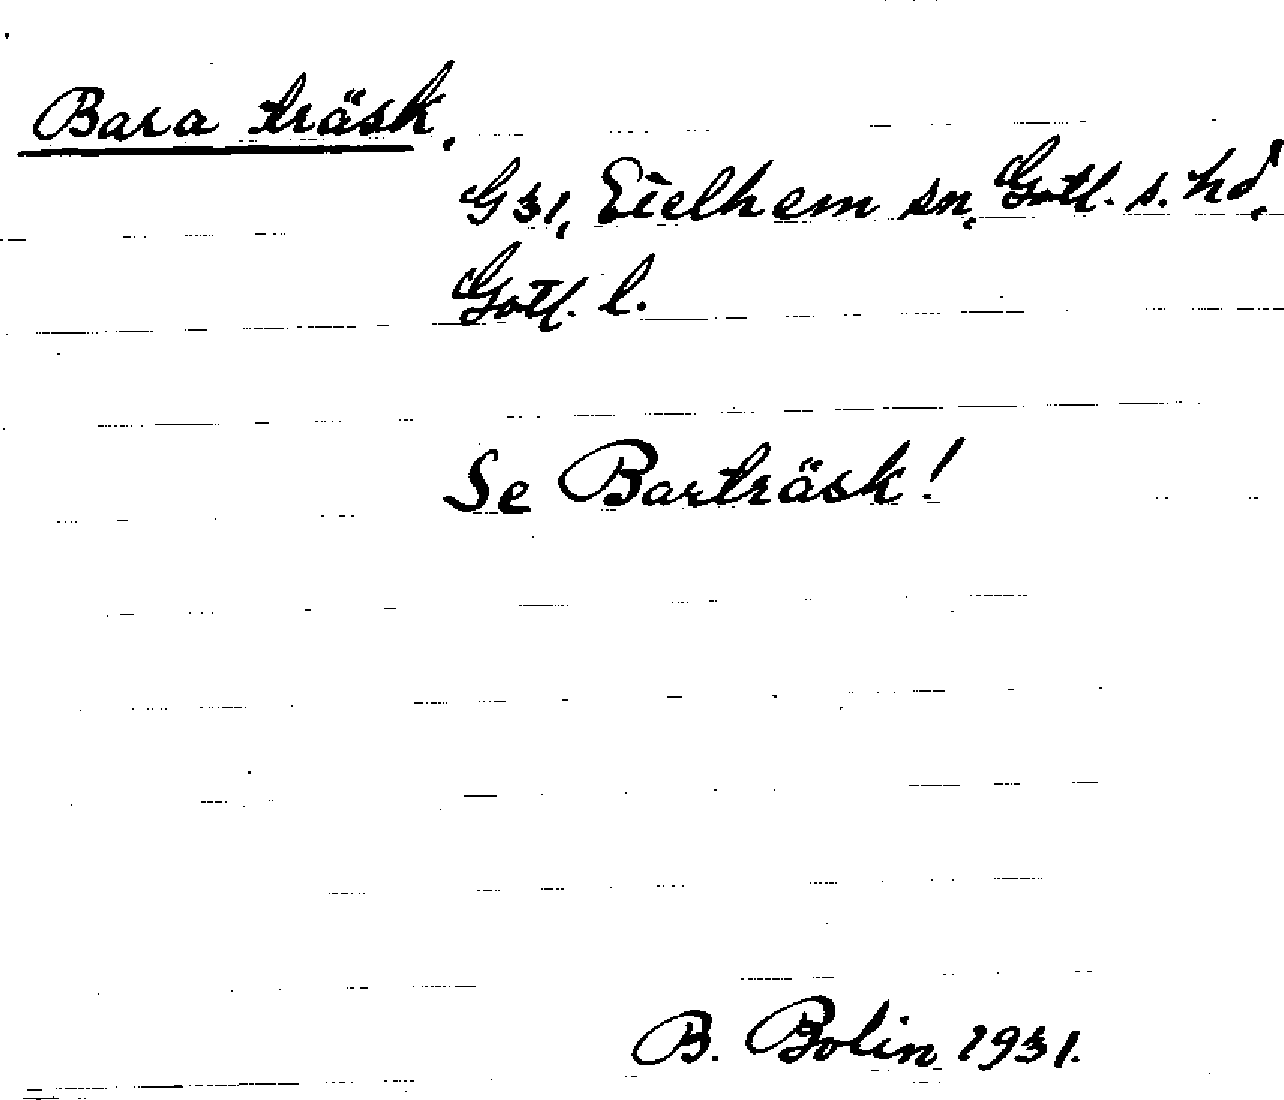 Bara träsk.
G 31, Etelhem sn, Gotl. s. hd,
Gotl. l.
Se Barträsk!
B. Bolin 1931.